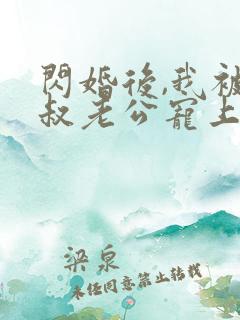 閃婚後,我被
叔老公寵上
梁泉
未經同意禁止轉載